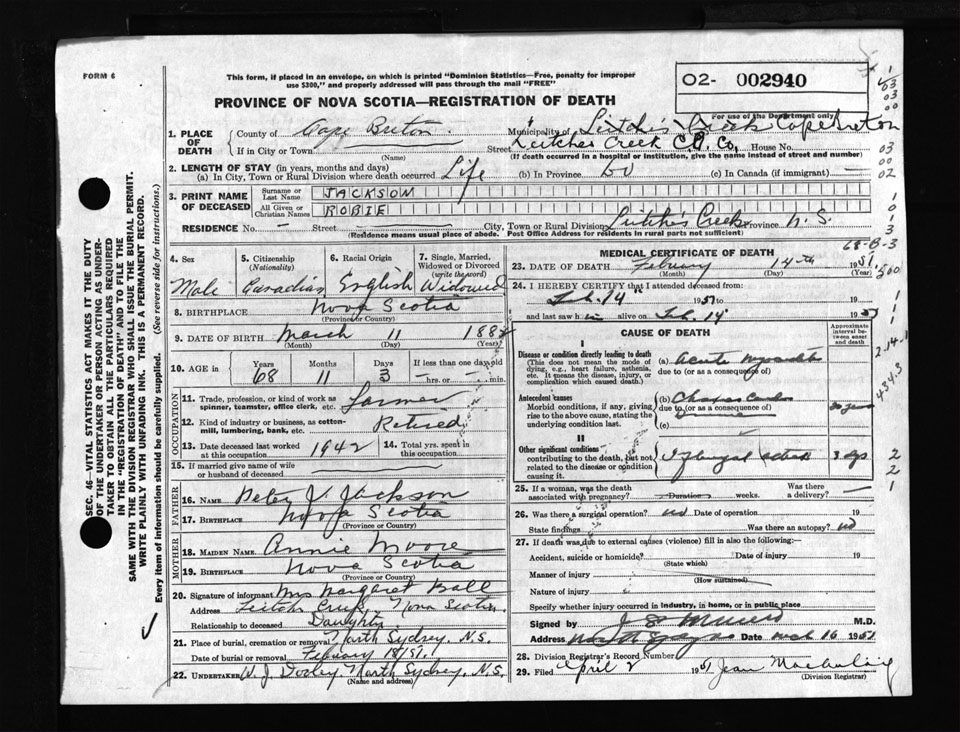 FORM 6
This form, if placed in an envelope, on which is printed "Dominion Statistics—Free, penalty for improper
use $300," and properly addressed will pass through the mail "FREE"
O2- 002940
For use of the Department only
PROVINCE OF NOVA SCOTIA—REGISTRATION OF DEATH
1. PLACE OF DEATH
County of Cape Breton. Municipality of Leitche's Creek Cape Breton
If in City or Town (Name) Street Leitches Creek C.B. Co, House No.
(If death occurred in a hospital or institution, give the name instead of street and number)
2. LENGTH OF STAY (in years, months and days)
(a) In City, Town or Rural Division where death occurred Life (b) In Province Do (c) In Canada (if immigrant) —
3. PRINT NAME OF DECEASED
Surname or Last Name JACKSON
All Given or Christian Names ROBIE
RESIDENCE No. — Street City, Town or Rural Division Leitche's Creek Province N. S.
(Residence means usual place of abode. Post Office Address for residents in rural parts not sufficient)
4. Sex Male
5. Citizenship (Nationality) Canadian
6. Racial Origin English
7. Single, Married, Widowed or Divorced (write the word) Widowed
8. BIRTHPLACE Nova Scotia
(Province or Country)
9. DATE OF BIRTH March 11 1882
(Month) (Day) (Year)
10. AGE in Years 68 Months 11 Days 3 If less than one day old —hrs. or —min.
OCCUPATION
11. Trade, profession, or kind of work as spinner, teamster, office clerk, etc. Farmer
12. Kind of industry or business, as cotton-mill, lumbering, bank, etc. Retired
13. Date deceased last worked at this occupation 1942
14. Total yrs. spent in this occupation
15. If married give name of wife or husband of deceased
FATHER
16. NAME J. Jackson
17. BIRTHPLACE Nova Scotia
(Province or Country)
MOTHER
18. MAIDEN NAME Annie Moore
19. BIRTHPLACE Nova Scotia
(Province or Country)
20. Signature of informant Mrs Margaret Ball
Address Leitche Creek, Nova Scotia.
Relationship to deceased Daughter
21. Place of burial, cremation or removal North Sydney, N.S.
Date of burial or removal February 18/51.
22. UNDERTAKER W. J. Dooley. North Sydney, N.S.
(Name and address)
MEDICAL CERTIFICATE OF DEATH
23. DATE OF DEATH February 14th 1951
(Month) (Day) (Year)
24. I HEREBY CERTIFY that I attended deceased from:
Feb. 14" 1951 to 19
and last saw h im alive on Feb. 14" 1951
CAUSE OF DEATH
Approximate interval between onset and death
I
Disease or condition directly leading to death
(This does not mean the mode of dying, e.g., heart failure, asthenia, etc. It means the disease, injury, or complication which caused death.)
(a) Acute
due to (or as a consequence of)
Antecedent causes
Morbid conditions, if any, giving rise to the above cause, stating the underlying condition last.
(b)
due to (or as a consequence of)
(c)
II
Other significant conditions contributing to the death, but not related to the disease or condition causing it.
3 dys
25. If a woman, was the death associated with pregnancy? Duration weeks. Was there a delivery? —
26. Was there a surgical operation? no Date of operation 19
State findings Was there an autopsy? no
27. If death was due to external causes (violence) fill in also the following:
Accident, suicide or homicide? Date of injury 19
(State which)
Manner of injury
(How sustained)
Nature of injury
Specify whether injury occurred in industry, in home, or in public place
Signed by M.D.
Address North Sydney Date March 16 1951
28. Division Registrar's Record Number
29. Filed April 2 1951 Jean
(Division Registrar)
SEC. 46—VITAL STATISTICS ACT MAKES IT THE DUTY
OF THE UNDERTAKER OR PERSON ACTING AS UNDER-
TAKER TO OBTAIN ALL THE PARTICULARS REQUIRED
IN THE "REGISTRATION OF DEATH" AND TO FILE THE
SAME WITH THE DIVISION REGISTRAR WHO SHALL ISSUE THE BURIAL PERMIT.
WRITE PLAINLY WITH UNFADING INK. THIS IS A PERMANENT RECORD.
Every item of information should be carefully supplied. (See reverse side for instructions.)